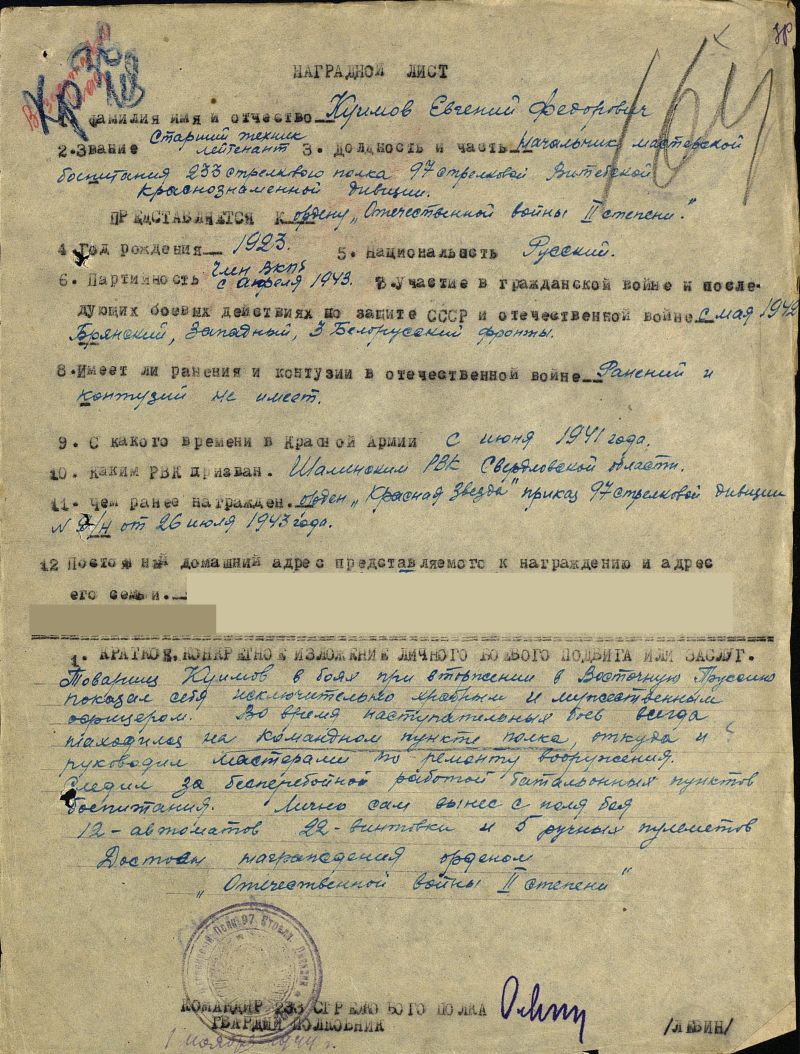 Кр 36
18
зр
164
НАГРАДНОЙ ЛИСТ
1. фамилия имя и отчество Куимов Евгений Федорович
2. Звание Старший техник лейтенант 3. Должность и часть Начальник мастерской
боепитания 233 стрелкового полка 97 стрелковой Витебской
краснознаменной дивизии.
ПРЕДСТАВЛЯЕТСЯ К ордену „Отечественной войны II степени."
4. Год рождения 1923. 5. Национальность Русский.
6. Партийность Член ВКПб с апреля 1943. 7. Участие в гражданской войне и после-
дующих боевых действиях по защите СССР и отечественной войне с мая 1942
Брянский, Западный, 3 Белорусский фронты.
8. Имеет ли ранения и контузии в отечественной войне Ранений и
контузий не имеет.
9. С какого времени в Красной Армии с июня 1941 года.
10. каким РВК призван. Шалинским РВК Свердловской области.
11. чем ранее награжден. орден „Красная Звезда" приказ 97 стрелковой дивизии
№ /н от 26 июля 1943 года.
12 Постоянный домашний адрес представляемого к награждению и адрес
его семьи.
1. КРАТКОЕ, КОНКРЕТНОЕ ИЗЛОЖЕНИЕ ЛИЧНОГО БОЕВОГО ПОДВИГА ИЛИ ЗАСЛУГ.
Товарищ Куимов в боях при вторжении в Восточную Пруссию
показал себя исключительно храбрым и мужественным
офицером. Во время наступательных боев всегда
находился на командном пункте полка, откуда и
руководил мастерами по ремонту вооружения.
Следил за бесперебойной работой батальонных пунктов
боепитания. Лично сам вынес с поля боя
12-автоматов 22-винтовки и 5 ручных пулеметов
Достоин награждения орденом
„Отечественной войны II степени"
КОМАНДИР 233 СТРЕЛКОВОГО ПОЛКА
ГВАРДИИ ПОЛКОВНИК /ЛЮБИН/
1 ноября 1944 г.